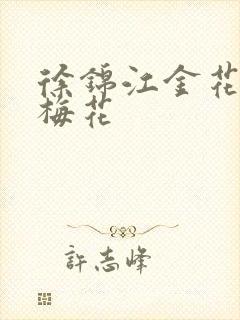 徐锦江金花
梅花
許志峰